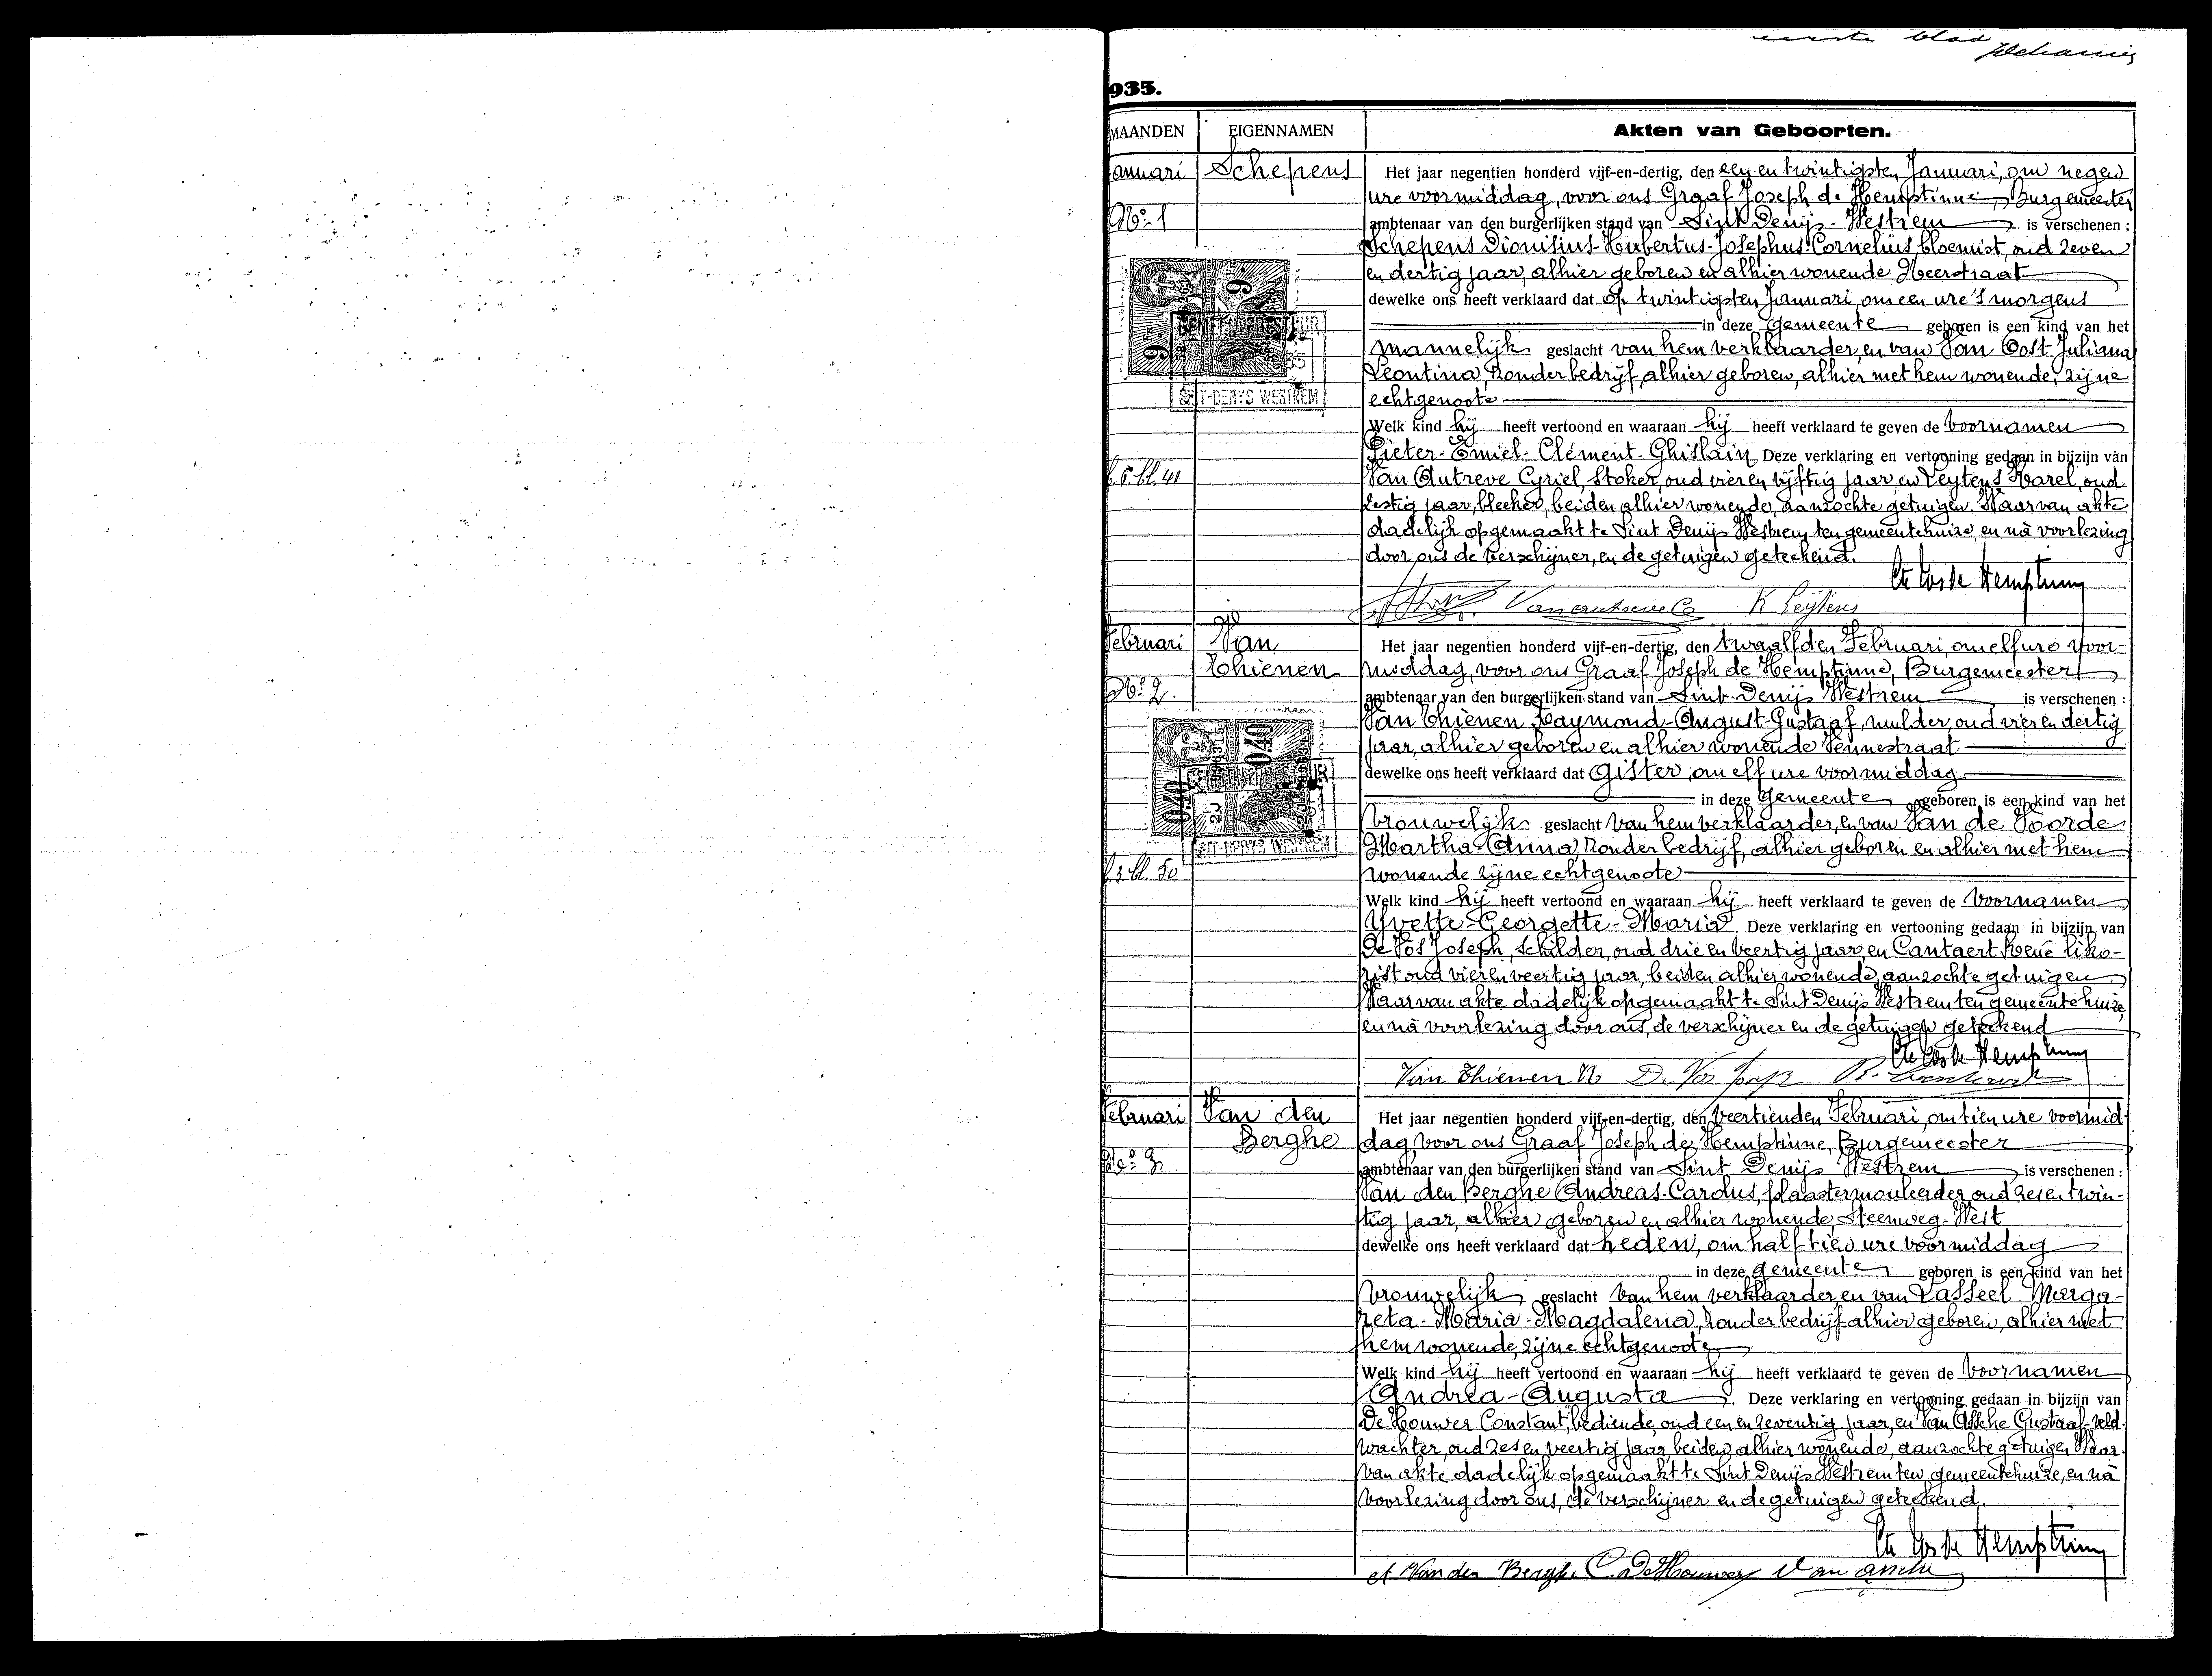 eerste blad
935.
MAANDEN EIGENNAMEN Akten van Geboorten.
anuari Schepens Het jaar negentien honderd vijf-en-dertig, den een en twintigsten Januari, om negen
No. 1 ure voormiddag, voor ons Graaf Joseph de Hemptinne, Burgemeester
ambtenaar van den burgerlijken stand van Sint Denijs-Westrem is verschenen :
Schepens Dionisius-Hubertus-Josephus-Cornelius, bloemist, oud zeven
en dertig jaar, alhier geboren en alhier wonende Heerstraat
dewelke ons heeft verklaard dat op twintigsten Januari, om een ure 's morgens
in deze gemeente geboren is een kind van het
mannelijk geslacht van hem verklaarder, en van Van Oost Juliana
Leontina, zonder bedrijf, alhier geboren, alhier met hem wonende, zijne
echtgenoote
GEMEENTEBESTUUR
SINT-DENYS WESTREM
Welk kind hij heeft vertoond en waaraan hij heeft verklaard te geven de voornamen
Pieter-Emiel-Clément-Ghislain Deze verklaring en vertooning gedaan in bijzijn van
bl. 41 Van Autreve Cyriel, Stoker, oud vier en vijftig jaar, en Leytens Karel, oud
zestig jaar, bleeker, beiden alhier wonende, aanzochte getuigen. Waarvan akte
dadelijk opgemaakt te Sint Denijs Westrem ten gemeentehuize, en nà voorlezing
door ons de verschijner, en de getuigen geteekend.
Cte Jos de Hemptinne
K Leytens
Februari Van Het jaar negentien honderd vijf-en-dertig, den twaalfden Februari, om elf ure voor-
Thienen middag, voor ons Graaf Joseph de Hemptinne, Burgemeester
No. 2. ambtenaar van den burgerlijken stand van Sint-Denijs Westrem is verschenen :
Van Thienen Raymond-August-Gustaaf, mulder, oud vier en dertig
jaar, alhier geboren en alhier wonende Vennestraat
dewelke ons heeft verklaard dat gister, om elf ure voormiddag
0.40 0.40
in deze gemeente geboren is een kind van het
vrouwelijk geslacht van hem verklaarder, en van Van de Voorde
SINT-DENYS WESTREM
Martha-Anna, zonder bedrijf, alhier geboren en alhier met hem
bl. 50 wonende zijne echtgenoote
Welk kind hij heeft vertoond en waaraan hij heeft verklaard te geven de voornamen
Yvette-Georgette-Maria. Deze verklaring en vertooning gedaan in bijzijn van
De Vos Joseph, schilder, oud drie en veertig jaar, en Cantaert René liko-
rist oud vier en veertig jaar, beiden alhier wonende, aanzochte getuigen
Waarvan akte dadelijk opgemaakt te Sint Denijs Westrem ten gemeentehuize,
en nà voorlezing door ons, de verschijner en de getuigen geteekend
Cte Jos de Hemptinne
Van Thienen R De Vos Josep
Februari Van den Het jaar negentien honderd vijf-en-dertig, den veertienden Februari, om tien ure voormid-
Berghe dag, voor ons Graaf Joseph de Hemptinne, Burgemeester
No. 3 ambtenaar van den burgerlijken stand van Sint Denijs Westrem is verschenen :
Van den Berghe Andreas-Carolus, plaastermouleerder, oud zes en twin-
tig jaar, alhier geboren en alhier wonende, Steenweg-West
dewelke ons heeft verklaard dat heden, om half tien ure voormiddag
in deze gemeente geboren is een kind van het
vrouwelijk geslacht van hem verklaarder en van Lasseel Marga-
reta-Maria-Magdalena, zonder bedrijf alhier geboren, alhier met
hem wonende, zijne echtgenoote
Welk kind hij heeft vertoond en waaraan hij heeft verklaard te geven de voornamen
Andrea-Augusta. Deze verklaring en vertooning gedaan in bijzijn van
De Houwer Constant, bediende, oud een en zeventig jaar, en Van Assche Gustaaf-veld-
wachter, oud zes en veertig jaar beiden alhier wonende, aanzochte getuigen Waar-
van akte dadelijk opgemaakt te Sint Denijs Westrem ten gemeentehuize, en nà
voorlezing door ons, de verschijner en de getuigen geteekend.
Cte Jos de Hemptinne
A Van den Berghe C. De Houwer Van assche